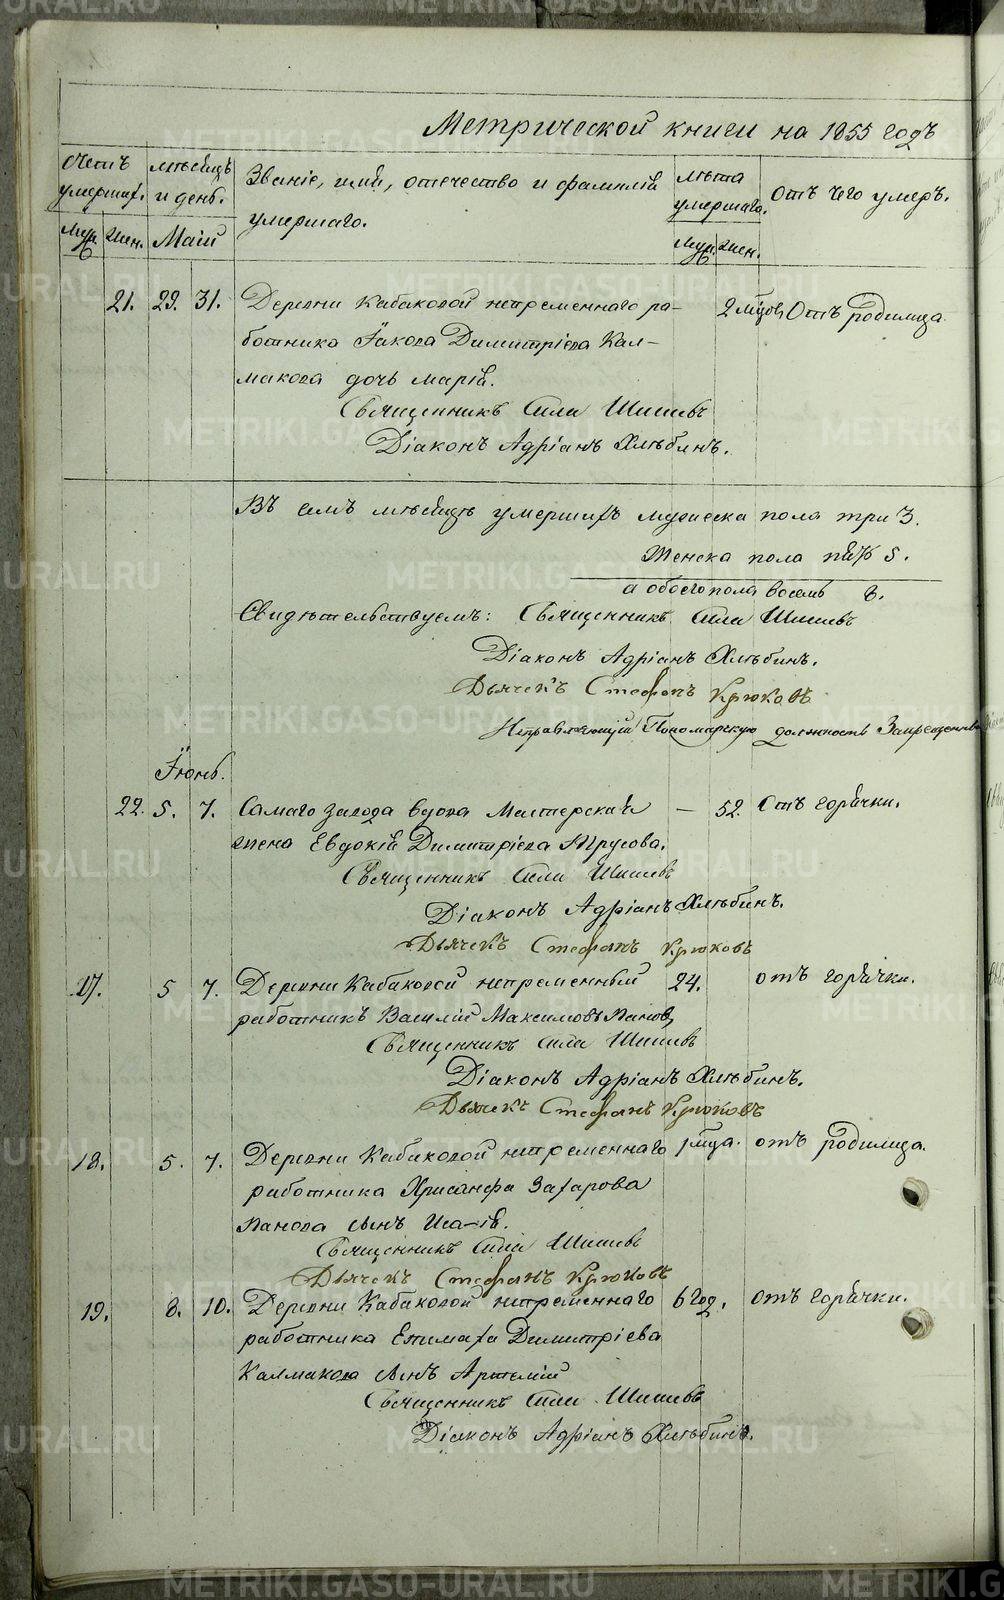 Метрической книги на 1855 годъ
Счетъ умершихъ.
мѣсяцъ и день.
Званіе, имя, отечество и фамилія умершаго.
лѣта умершаго.
отъ чего умеръ.
Муж. Жен. Май Муж. Жен.
21. 29. 31. Деревни Кабаковой непременнаго ра- 2 мѣсяцовъ Отъ родимца
ботника Іакова Димитріева Кал-
макова дочь Марія.
Священникъ Сила Шишевъ
Діаконъ Адріанъ Хлѣбинъ.
Въ семъ мѣсяцѣ умершихъ мужеска пола три 3.
Женска пола пять 5.
а обоего пола восемь 8.
Свидѣтельствуемъ: Священникъ Сила Шишевъ
Діаконъ Адріанъ Хлѣбинъ.
Дьячекъ Стефанъ Крюковъ
Исправляющій Пономарскую должность Запрещенный
Іюнь.
22. 5. 7. Самаго завода вдова Мастерская — 52. Отъ горячки.
жена Евдокія Димитріева Трусова.
Священникъ Сила Шишевъ
Діаконъ Адріанъ Хлѣбинъ.
Дьячекъ Стефанъ Крюковъ
17. 5 7. Деревни Кабаковой непременный 24. отъ горячки.
работникъ Василій Максимовъ Пановъ
Священникъ Сила Шишевъ
Діаконъ Адріанъ Хлѣбинъ.
Дьячекъ Стефанъ Крюковъ
18. 5. 7. Деревни Кабаковой непременнаго 1 мѣсяца. отъ родимца.
работника Хрисанфа Захарова
Панова сынъ Исаія.
Священникъ Сила Шишевъ
Дьячекъ Стефанъ Крюковъ
19. 8. 10. Деревни Кабаковой непременнаго 6 год. отъ горячки.
работника Епимаха Димитріева
Калмакова сынъ Артемій
Священникъ Сила Шишевъ
Діаконъ Адріанъ Хлѣбинъ.
METRIKI.GASO-URAL.RU